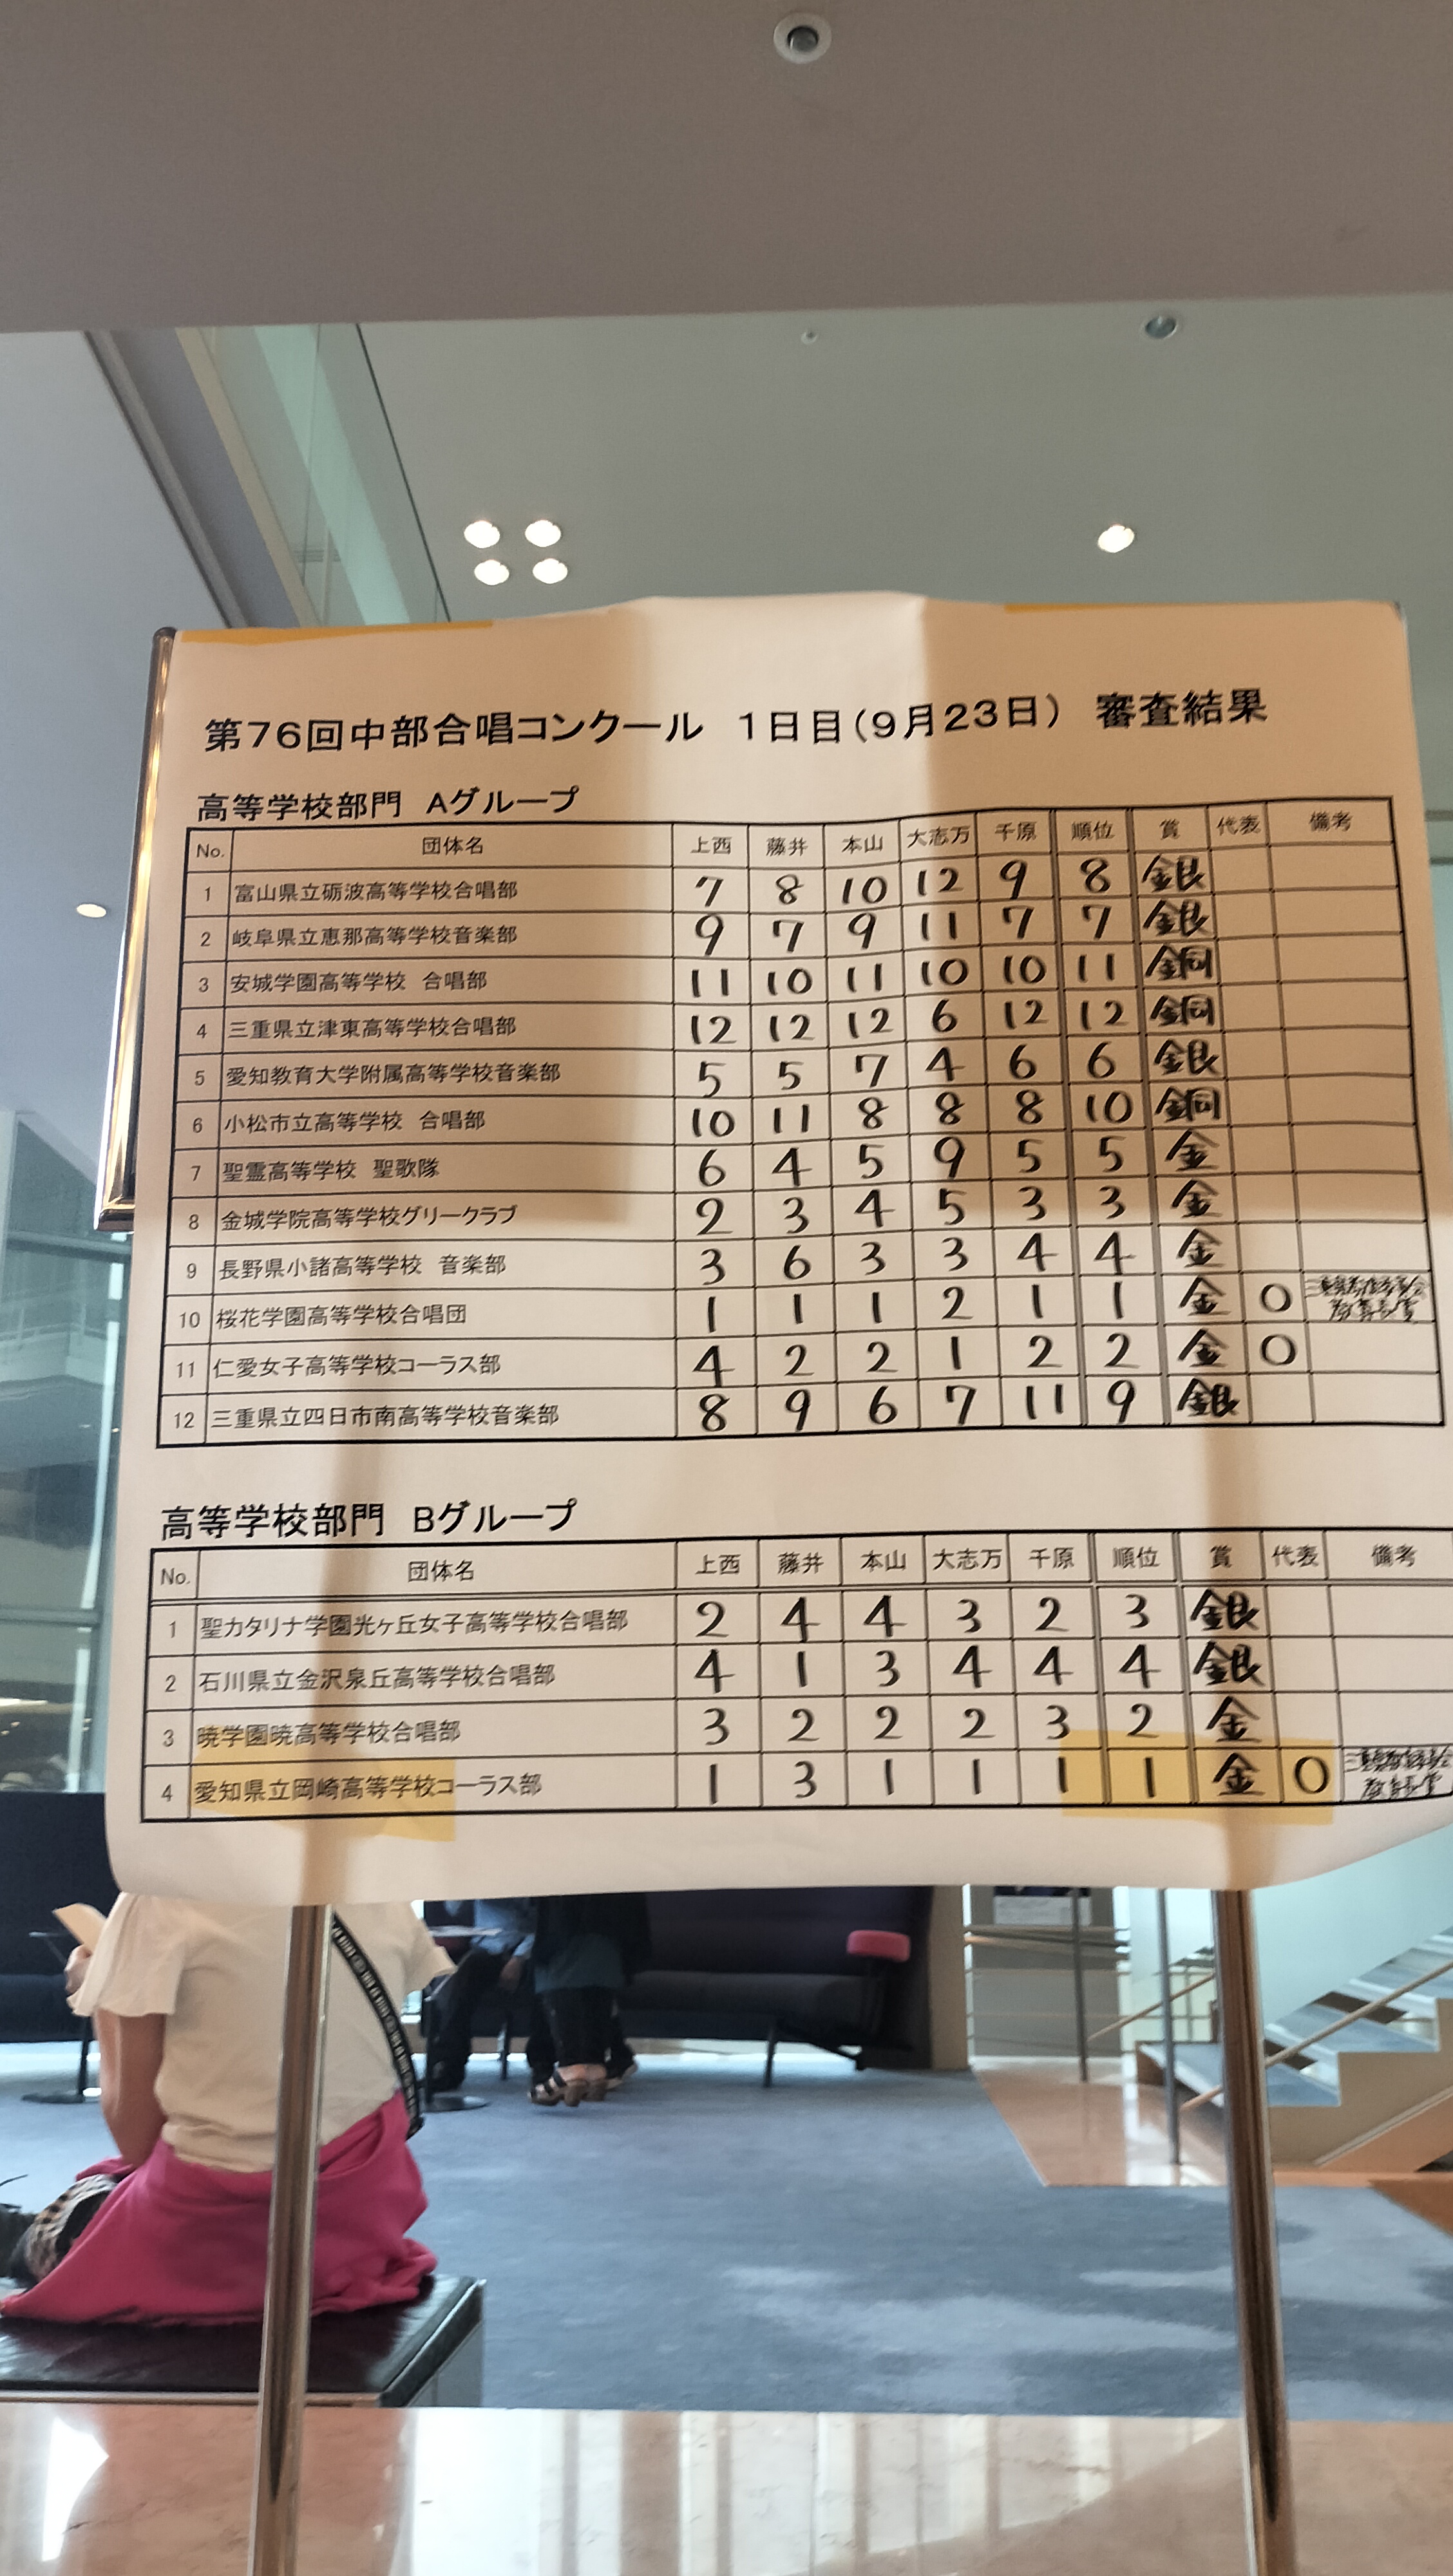 第76回中部合唱コンクール 1日目(9月23日) 審査結果
高等学校部門 Aグループ
No. 団体名 上西 藤井 本山 大志万 千原 順位 賞 代表 備考
1 富山県立砺波高等学校合唱部 7 8 10 12 9 8 銀
2 岐阜県立恵那高等学校音楽部 9 7 9 11 7 7 銀
3 安城学園高等学校 合唱部 11 10 11 10 10 11 銅
4 三重県立津東高等学校合唱部 12 12 12 6 12 12 銅
5 愛知教育大学附属高等学校音楽部 5 5 7 4 6 6 銀
6 小松市立高等学校 合唱部 10 11 8 8 8 10 銅
7 聖霊高等学校 聖歌隊 6 4 5 9 5 5 金
8 金城学院高等学校グリークラブ 2 3 4 5 3 3 金
9 長野県小諸高等学校 音楽部 3 6 3 3 4 4 金
10 桜花学園高等学校合唱団 1 1 1 2 1 1 金 ○
11 仁愛女子高等学校コーラス部 4 2 2 1 2 2 金 ○
12 三重県立四日市南高等学校音楽部 8 9 6 7 11 9 銀
高等学校部門 Bグループ
No. 団体名 上西 藤井 本山 大志万 千原 順位 賞 代表 備考
1 聖カタリナ学園光ヶ丘女子高等学校合唱部 2 4 4 3 2 3 銀
2 石川県立金沢泉丘高等学校合唱部 4 1 3 4 4 4 銀
3 暁学園暁高等学校合唱部 3 2 2 2 3 2 金
4 愛知県立岡崎高等学校コーラス部 1 3 1 1 1 1 金 ○